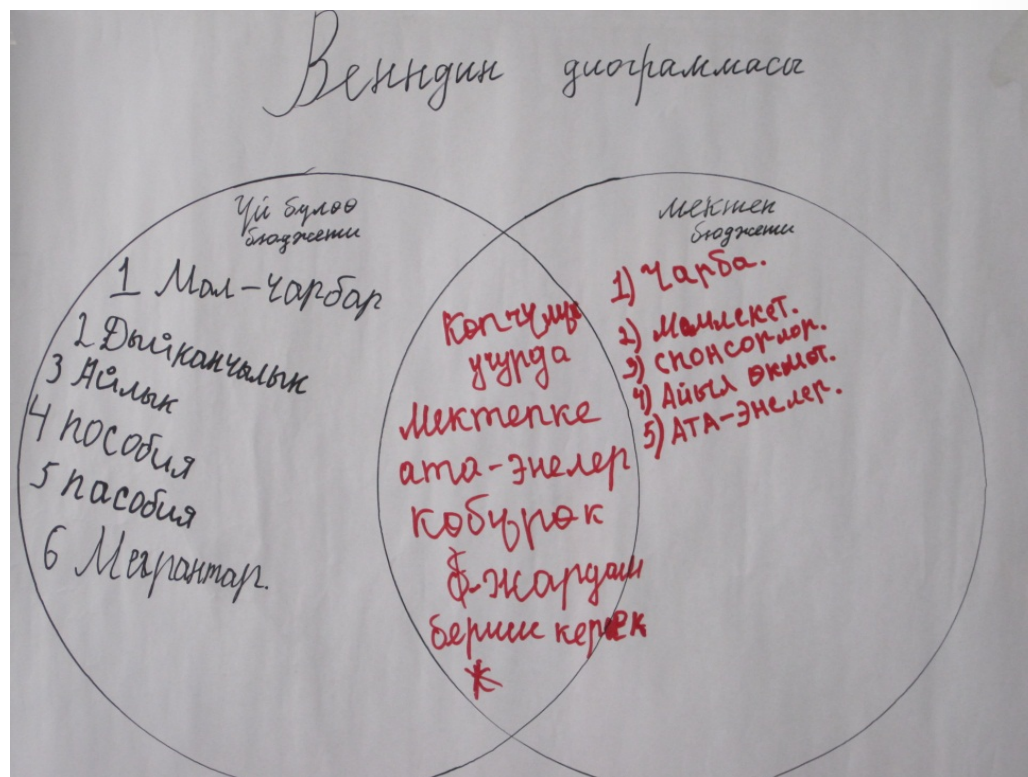 Венндин диограммасы
Үй бүлөө
бюджети
1 Мал-чарбар
2 Дыйканчылык
3 Айлык
4 пособия
5 пасобия
6 Мегрантар.
Көпчүлүк
учурда
Мектепке
ата-энелер
көбүрөк
жардам
бериш керек
мектеп
бюджети
1) Чарба.
2) Мамлекет.
3) спонсорлор.
4) Айыл өкмөт.
5) АТА-энелер.